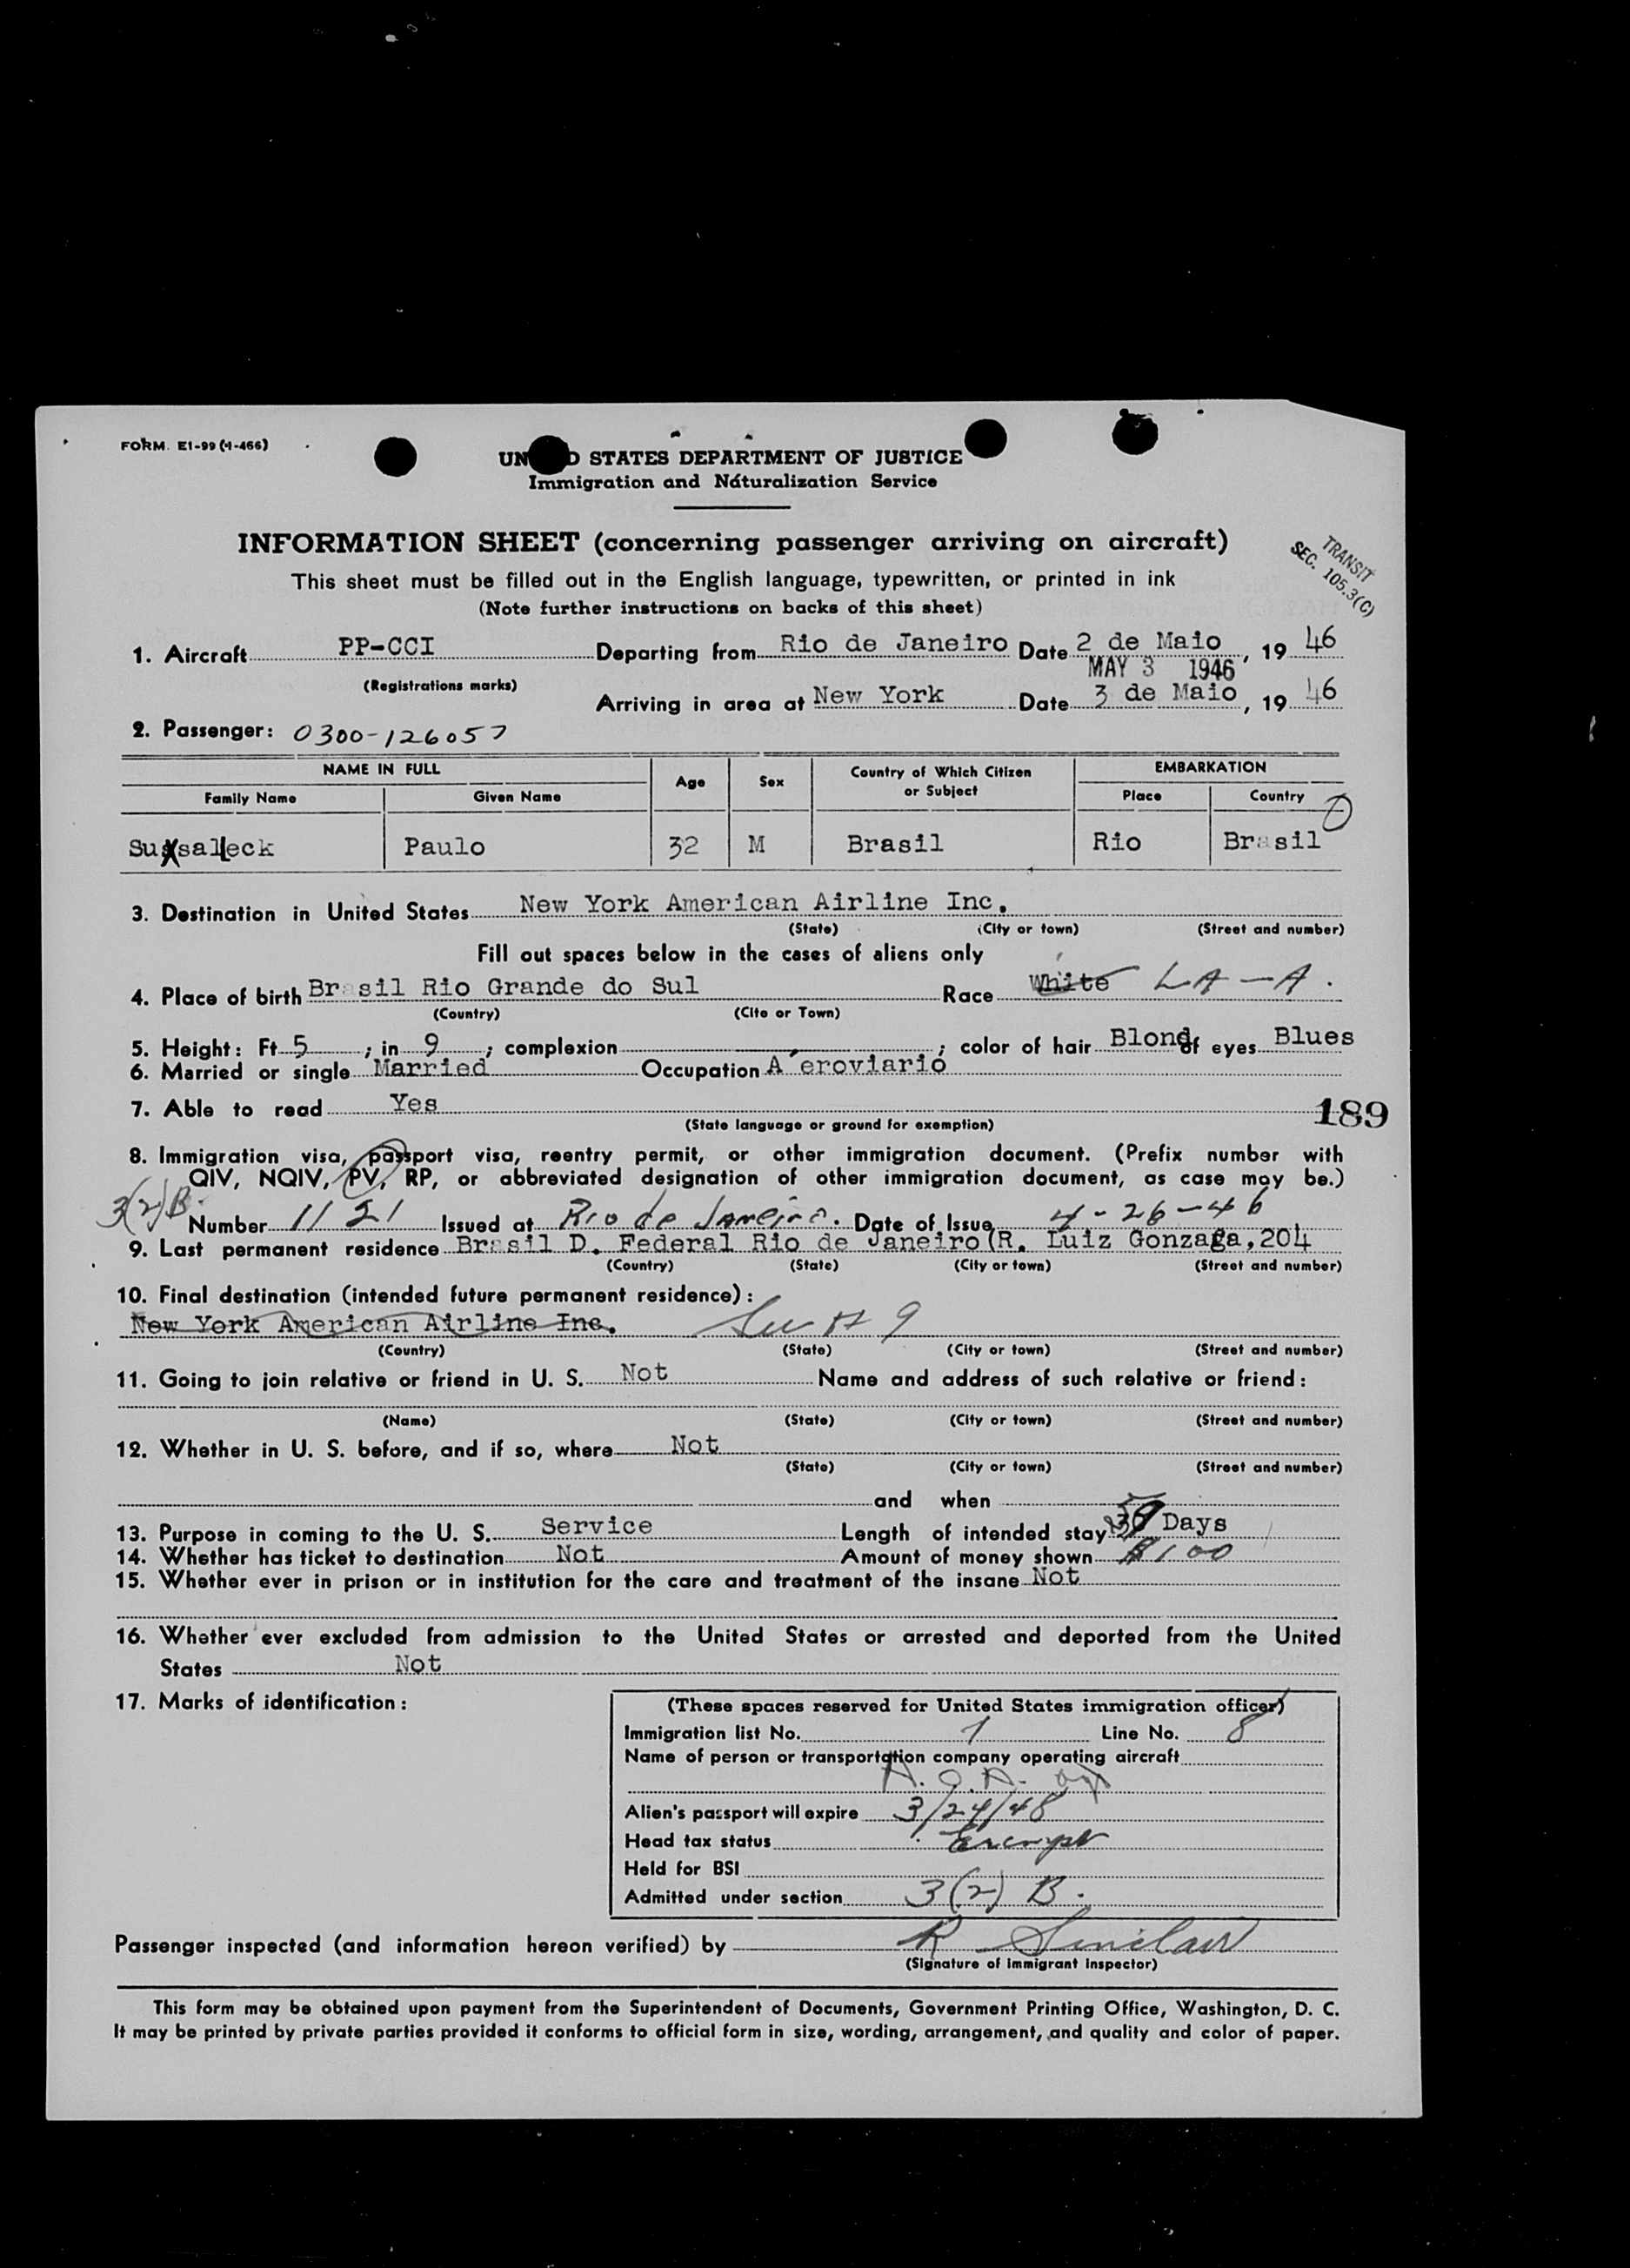 FORM. E1-99 (4-466)
UN D STATES DEPARTMENT OF JUSTICE
Immigration and Naturalization Service
INFORMATION SHEET (concerning passenger arriving on aircraft)
TRANSIT
SEC. 105.3(C)
This sheet must be filled out in the English language, typewritten, or printed in ink
(Note further instructions on backs of this sheet)
1. Aircraft PP-CCI Departing from Rio de Janeiro Date 2 de Maio, 19 46
MAY 3 1946
(Registrations marks)
Arriving in area at New York Date 3 de Maio, 19 46
2. Passenger: 0300-126057
NAME IN FULL Age Sex Country of Which Citizen or Subject EMBARKATION
Family Name Given Name Place Country
Paulo 32 M Brasil Rio Brasil
3. Destination in United States New York American Airline Inc.
(State) (City or town) (Street and number)
Fill out spaces below in the cases of aliens only
4. Place of birth Brasil Rio Grande do Sul Race White LA-A.
(Country) (Cite or Town)
5. Height: Ft 5 ; in 9 ; complexion ; color of hair Blond of eyes Blues
6. Married or single Married Occupation A'eroviario
7. Able to read Yes
189
(State language or ground for exemption)
8. Immigration visa, passport visa, reentry permit, or other immigration document. (Prefix number with
QIV, NQIV, PV, RP, or abbreviated designation of other immigration document, as case may be.)
3(2)B.
Number 1121 Issued at Rio de Janeiro. Date of Issue 4-26-46
9. Last permanent residence Brasil D. Federal Rio de Janeiro (R. Luiz Gonzaga, 204
(Country) (State) (City or town) (Street and number)
10. Final destination (intended future permanent residence):
New York American Airline Inc. 9
(Country) (State) (City or town) (Street and number)
11. Going to join relative or friend in U. S. Not Name and address of such relative or friend:
(Name) (State) (City or town) (Street and number)
12. Whether in U. S. before, and if so, where Not
(State) (City or town) (Street and number)
and when
13. Purpose in coming to the U. S. Service Length of intended stay Days
14. Whether has ticket to destination Not Amount of money shown $100
15. Whether ever in prison or in institution for the care and treatment of the insane Not
16. Whether ever excluded from admission to the United States or arrested and deported from the United
States Not
17. Marks of identification:
(These spaces reserved for United States immigration officer)
Immigration list No. 1 Line No. 8
Name of person or transportation company operating aircraft
A. O. A.
Alien's passport will expire 3/24/48
Head tax status Exempt
Held for BSI
Admitted under section 3(2) B.
Passenger inspected (and information hereon verified) by R Sinclair
(Signature of Immigrant Inspector)
This form may be obtained upon payment from the Superintendent of Documents, Government Printing Office, Washington, D. C.
It may be printed by private parties provided it conforms to official form in size, wording, arrangement, and quality and color of paper.